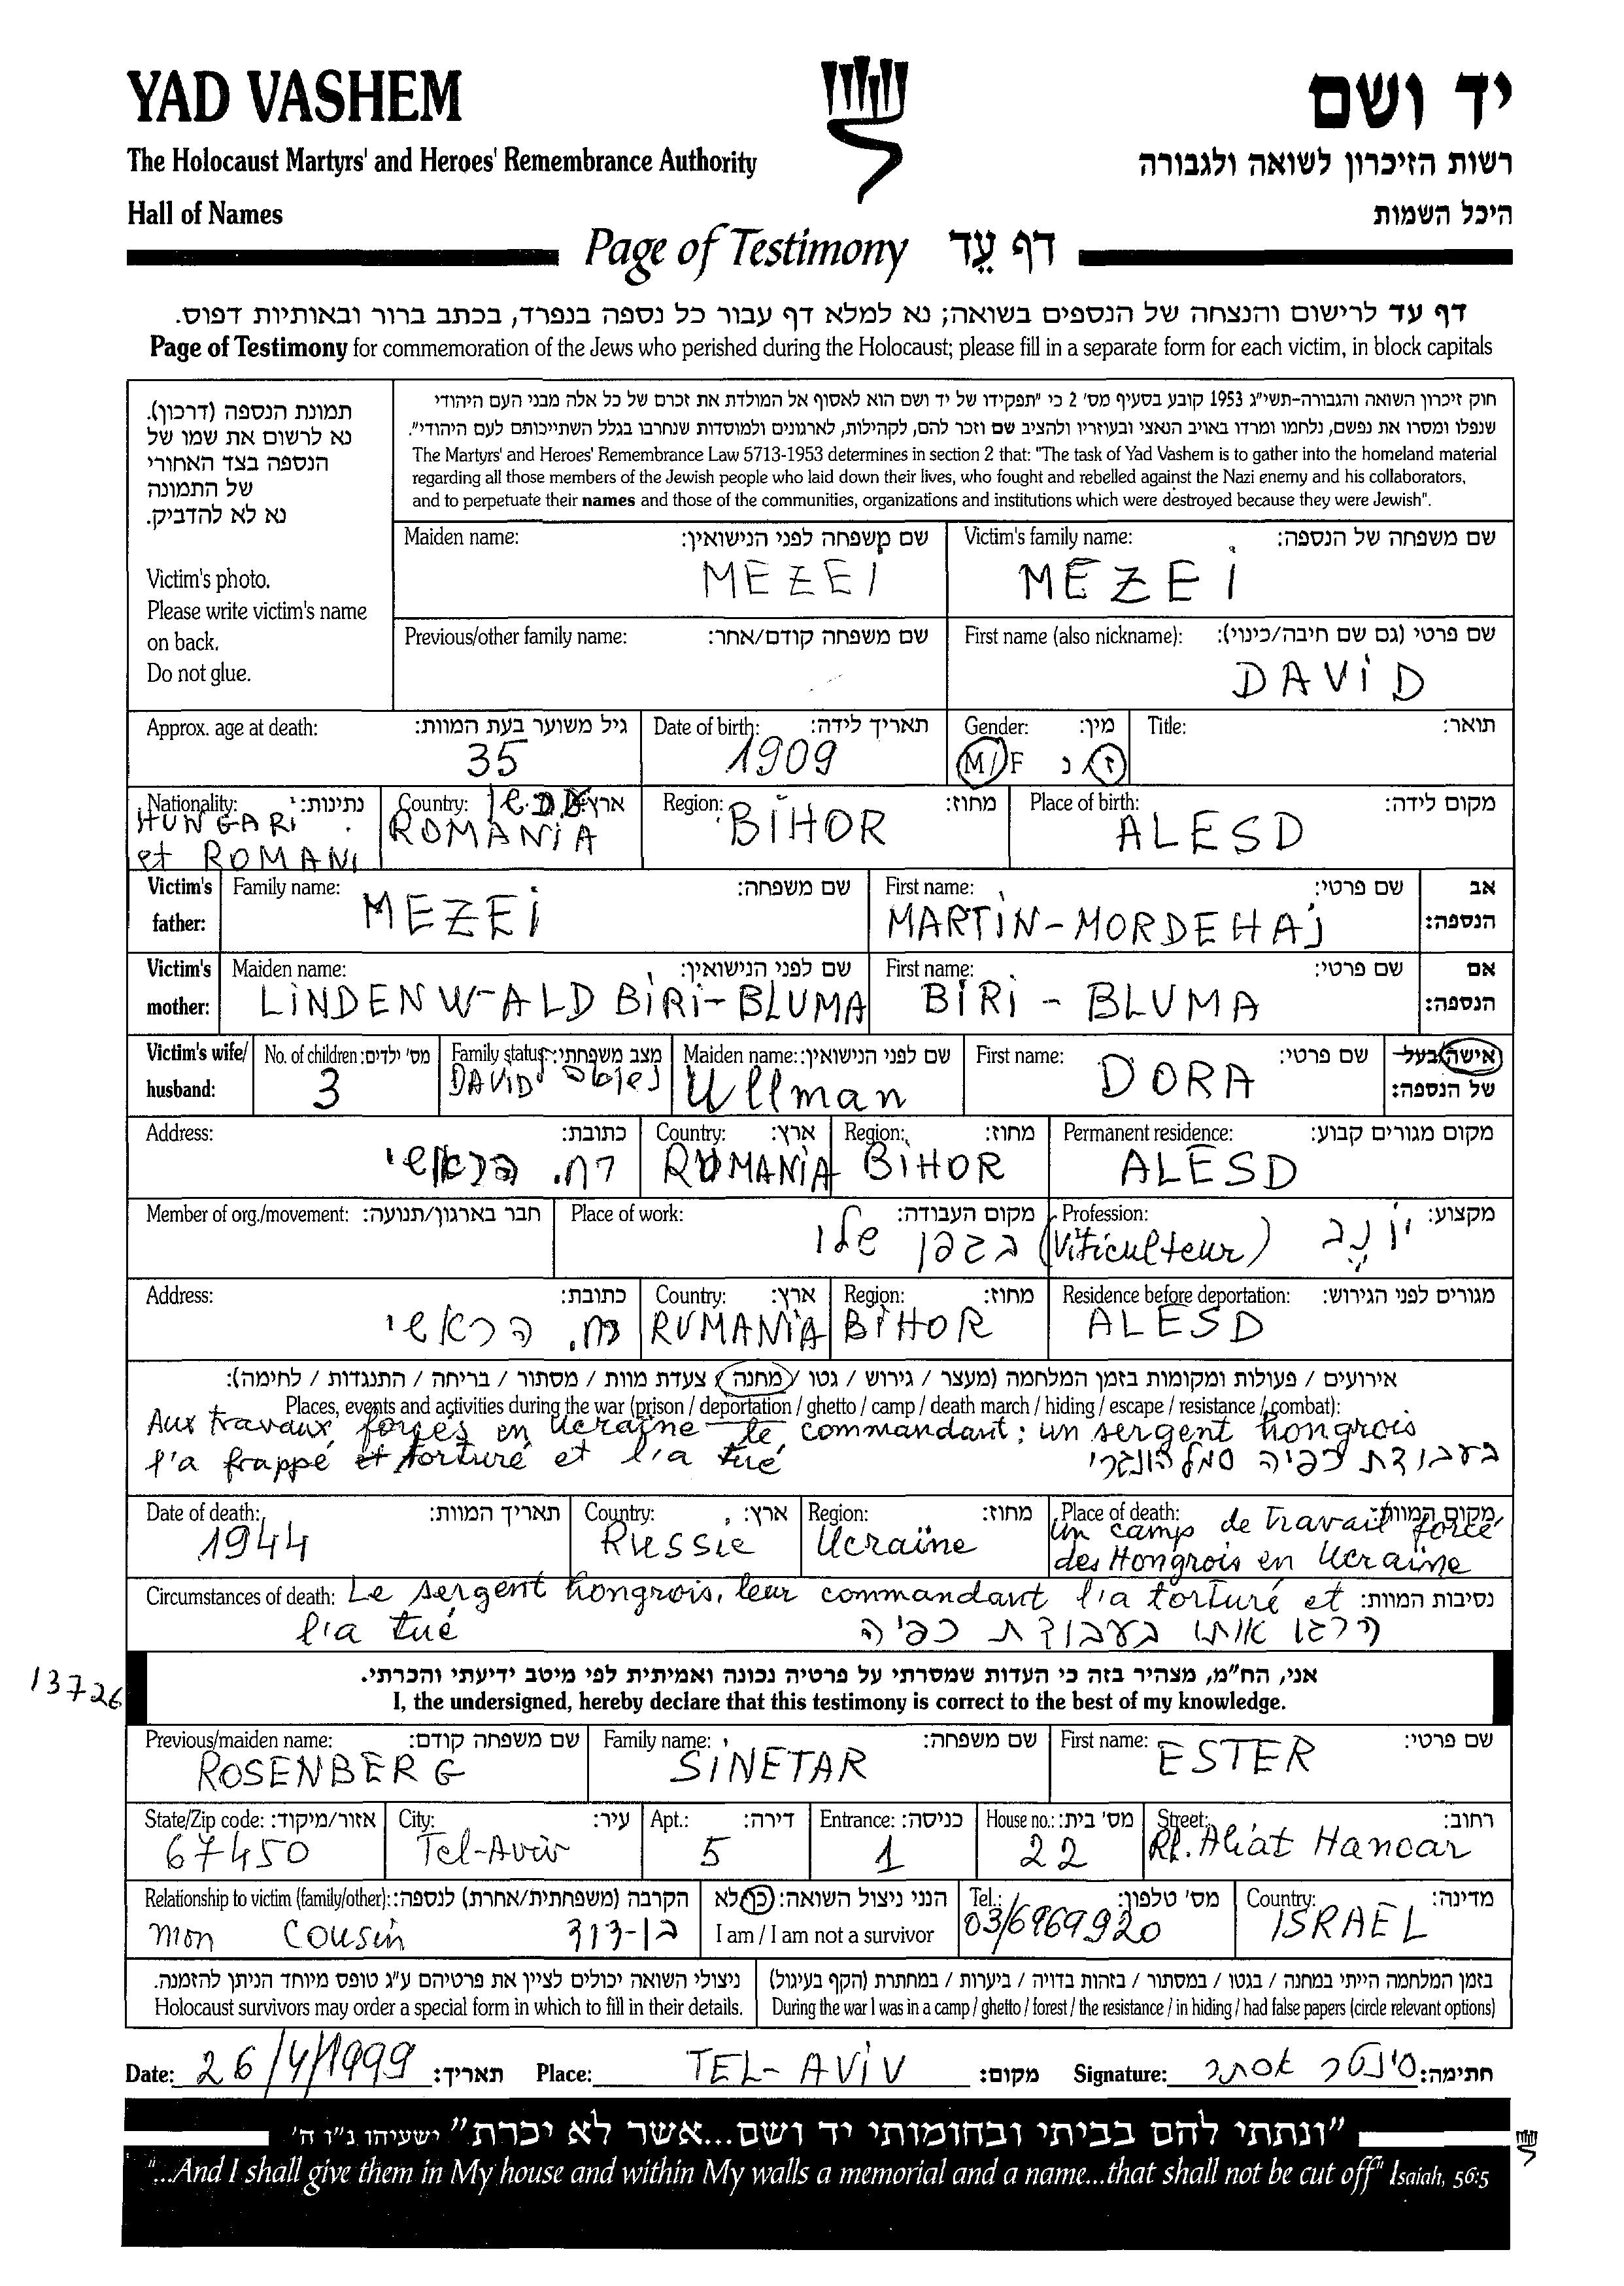 YAD VASHEM
יד ושם
The Holocaust Martyrs' and Heroes' Remembrance Authority
רשות הזיכרון לשואה ולגבורה
Hall of Names
היכל השמות
Page of Testimony דף עֵד
דף עד לרישום והנצחה של הנספים בשואה; נא למלא דף עבור כל נספה בנפרד, בכתב ברור ובאותיות דפוס.
Page of Testimony for commemoration of the Jews who perished during the Holocaust; please fill in a separate form for each victim, in block capitals
תמונת הנספה (דרכון).
נא לרשום את שמו של
הנספה בצד האחורי
של התמונה
נא לא להדביק.
Victim's photo.
Please write victim's name
on back.
Do not glue.
חוק זיכרון השואה והגבורה-תשי"ג 1953 קובע בסעיף מס' 2 כי "תפקידו של יד ושם הוא לאסוף אל המולדת את זכרם של כל אלה מבני העם היהודי
שנפלו ומסרו את נפשם, נלחמו ומרדו באויב הנאצי ובעוזריו ולהציב שם וזכר להם, לקהילות, לארגונים ולמוסדות שנחרבו בגלל השתייכותם לעם היהודי".
The Martyrs' and Heroes' Remembrance Law 5713-1953 determines in section 2 that: "The task of Yad Vashem is to gather into the homeland material
regarding all those members of the Jewish people who laid down their lives, who fought and rebelled against the Nazi enemy and his collaborators,
and to perpetuate their names and those of the communities, organizations and institutions which were destroyed because they were Jewish".
Maiden name: שם משפחה לפני הנישואין:
MEZEI
Victim's family name: שם משפחה של הנספה:
MEZEI
Previous/other family name: שם משפחה קודם/אחר:
First name (also nickname): שם פרטי (גם שם חיבה/כינוי):
DAVID
Approx. age at death: גיל משוער בעת המוות:
35
Date of birth: תאריך לידה:
1909
Gender: מין:
M/F ז/נ
Title: תואר:
Nationality: נתינות:
HUNGARI
et ROMANI
Country: ארץ:
ROMANIA
Region: מחוז:
BIHOR
Place of birth: מקום לידה:
ALESD
Victim's father:
Family name: שם משפחה:
MEZEI
First name: שם פרטי:
MARTIN-MORDEHAJ
אב הנספה:
Victim's mother:
Maiden name: שם לפני הנישואין:
LINDENW-ALD BIRI-BLUMA
First name: שם פרטי:
BIRI - BLUMA
אם הנספה:
Victim's wife/ husband:
No. of children: מס' ילדים:
3
Family status: מצב משפחתי:
DAVID נשוי
Maiden name: שם לפני הנישואין:
Ullman
First name: שם פרטי:
DORA
אישה/בעל
של הנספה:
Address: כתובת:
רח. הראשי
Country: ארץ:
RUMANIA
Region: מחוז:
BIHOR
Permanent residence: מקום מגורים קבוע:
ALESD
Member of org./movement: חבר בארגון/תנועה:
Place of work: מקום העבודה:
בגפן שלו
Profession: מקצוע:
(Viticulteur)
Address: כתובת:
רח. הראשי
Country: ארץ:
RUMANIA
Region: מחוז:
BIHOR
Residence before deportation: מגורים לפני הגירוש:
ALESD
אירועים / פעולות ומקומות בזמן המלחמה (מעצר / גירוש / גטו / מחנה / צעדת מוות / מסתור / בריחה / התנגדות / לחימה):
Places, events and activities during the war (prison / deportation / ghetto / camp / death march / hiding / escape / resistance / combat):
Aux travaux forcés en Ucraïne le commandant; un sergent hongrois
l'a frappé et torturé et l'a tué בעבודת כפיה סמל הונגרי
Date of death: תאריך המוות:
1944
Country: ארץ:
Russie
Region: מחוז:
Ucraïne
Place of death: מקום המוות:
Un camp de travail forcé
des Hongrois en Ucraïne
Circumstances of death: Le sergent hongrois, leur commandant l'a torturé et נסיבות המוות:
l'a tué הרגו אותו בעבודת כפיה
13726
אני, הח"מ, מצהיר בזה כי העדות שמסרתי על פרטיה נכונה ואמיתית לפי מיטב ידיעתי והכרתי.
I, the undersigned, hereby declare that this testimony is correct to the best of my knowledge.
Previous/maiden name: שם משפחה קודם:
ROSENBERG
Family name: שם משפחה:
SINETAR
First name: שם פרטי:
ESTER
State/Zip code: אזור/מיקוד:
67450
City: עיר:
Tel-Aviv
Apt.: דירה:
5
Entrance: כניסה:
1
House no.: מס' בית:
22
Street: רחוב:
Rh. Aliat Hanoar
Relationship to victim (family/other): הקרבה (משפחתית/אחרת) לנספה:
mon cousin בן-דוד
הנני ניצול השואה: כן/לא
I am / I am not a survivor
Tel.: מס' טלפון:
03/6969920
Country: מדינה:
ISRAEL
ניצולי השואה יכולים לציין את פרטיהם ע"ג טופס מיוחד הניתן להזמנה.
Holocaust survivors may order a special form in which to fill in their details.
בזמן המלחמה הייתי במחנה / בגטו / במסתור / בזהות בדויה / ביערות / במחתרת (הקף בעיגול)
During the war I was in a camp / ghetto / forest / the resistance / in hiding / had false papers (circle relevant options)
Date: 26/4/1999 תאריך: Place: TEL-AVIV מקום: Signature: סינטר אסתר חתימה:
"ונתתי להם בביתי ובחומותי יד ושם...אשר לא יכרת" ישעיהו נ"ו ה'
"...And I shall give them in My house and within My walls a memorial and a name...that shall not be cut off" Isaiah, 56:5